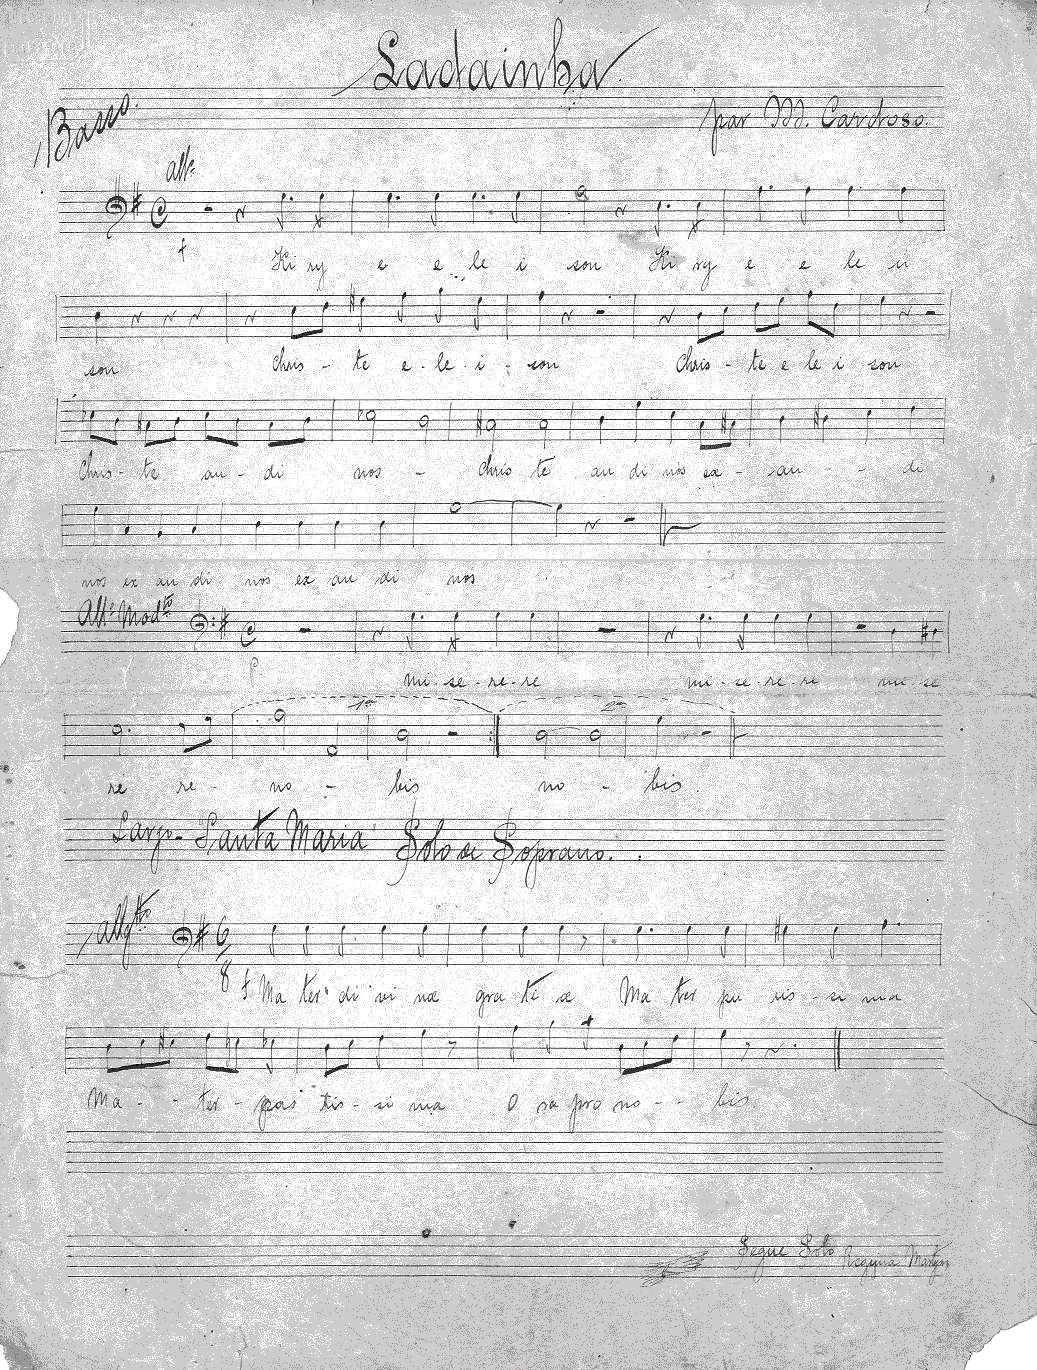 Ladainha.
Basso.
par M. Cardoso.
All°
f
Ki ry e e le i son Ki ry e e le i
son Chris - te e - le - i - son Chris - te e le i son
Chris - te au - di nos - Chris te au di nos ex - au - - di
nos ex au di nos ex au di nos
All° Modto
p
mi - se - re - re mi - se - re - re mi - se
re re - no - bis no - bis.
1a 2a
Largo - Santa Maria Solo de Soprano.
Allgtto
6
8
f Ma ter di vi næ gra ti æ Ma ter pu ris - si ma
Ma - - ter - cas tis - si ma O ra pro no - - bis.
Segue Solo Regina